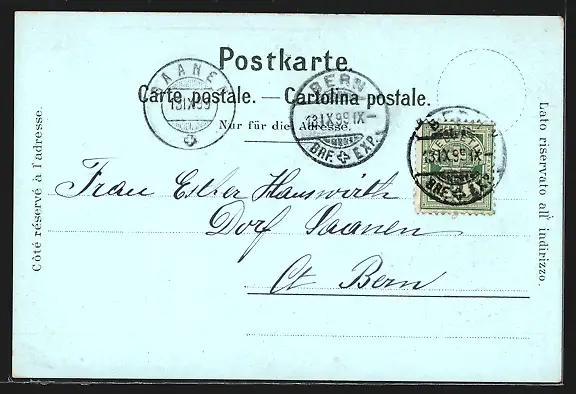 Postkarte.
Carte postale. — Cartolina postale.
Nur für die Adresse.
Côté réservé à l'adresse.
Lato riservato all' indirizzo.
SAANEN
13 IX 99
BERN
13 IX 99 IX–
BRF. EXP.
BERN
13 IX 99 IX–
BRF. EXP.
Frau Esther Hauswirth
Dorf Saanen
Ct Bern